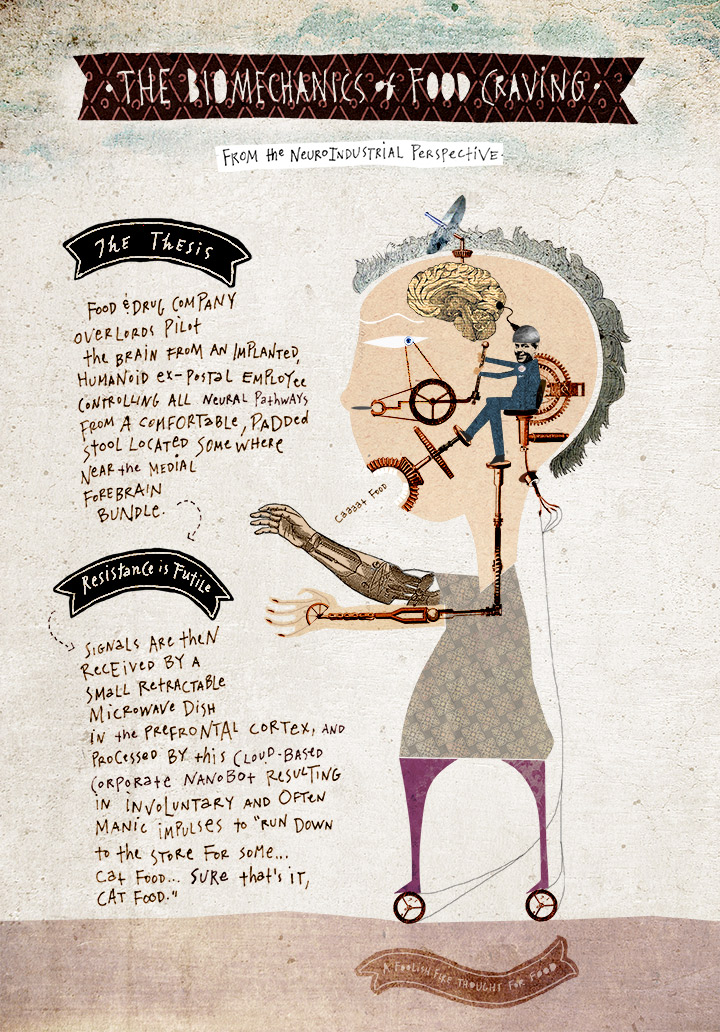 · THE BIOMECHANICS of FOOD CRAVING ·
FROM the NEUROINDUSTRIAL PERSPECTIVE.
THE THESIS
FOOD & DRUG COMPANY
OVERLORDS PILOT
the BRAIN FROM AN IMPLANTED,
HUMANOID ex-POSTAL EMPLOYEE
CONTROLLING ALL NEURAL PATHWAYS
FROM A COMFORTABLE, PADDED
STOOL LOCATED SOMEWHERE
NEAR the MEDIAL
FOREBRAIN
BUNDLE.
Caaaat FOOD
Resistance is Futile
SIGNALS ARE then
RECEIVED BY A
SMALL RETRACTABLE
MICROWAVE DISH
IN the PREFRONTAL CORTEX, AND
PROCESSED BY this CLOUD-BASED
CORPORATE NANOBOT RESULTING
IN INVOLUNTARY AND OFTEN
MANIC IMPULSES to "RUN DOWN
to the STORE FOR SOME...
CAT FOOD... SURE that's IT,
CAT FOOD."
A FOOLISH FIRE THOUGHT FOR FOOD